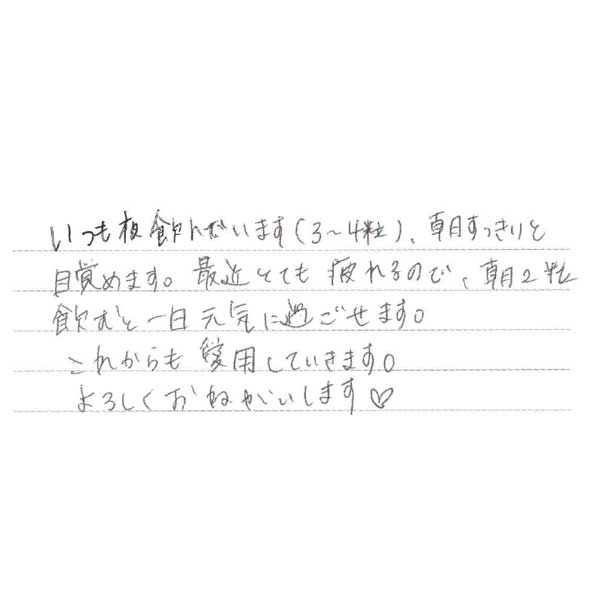 いつも夜飲んでいます(3〜4粒)、朝すっきりと
目覚めます。最近とても疲れるので、朝2粒
飲むと一日元気に過ごせます。
これからも愛用していきます。
よろしくおねがいします♡